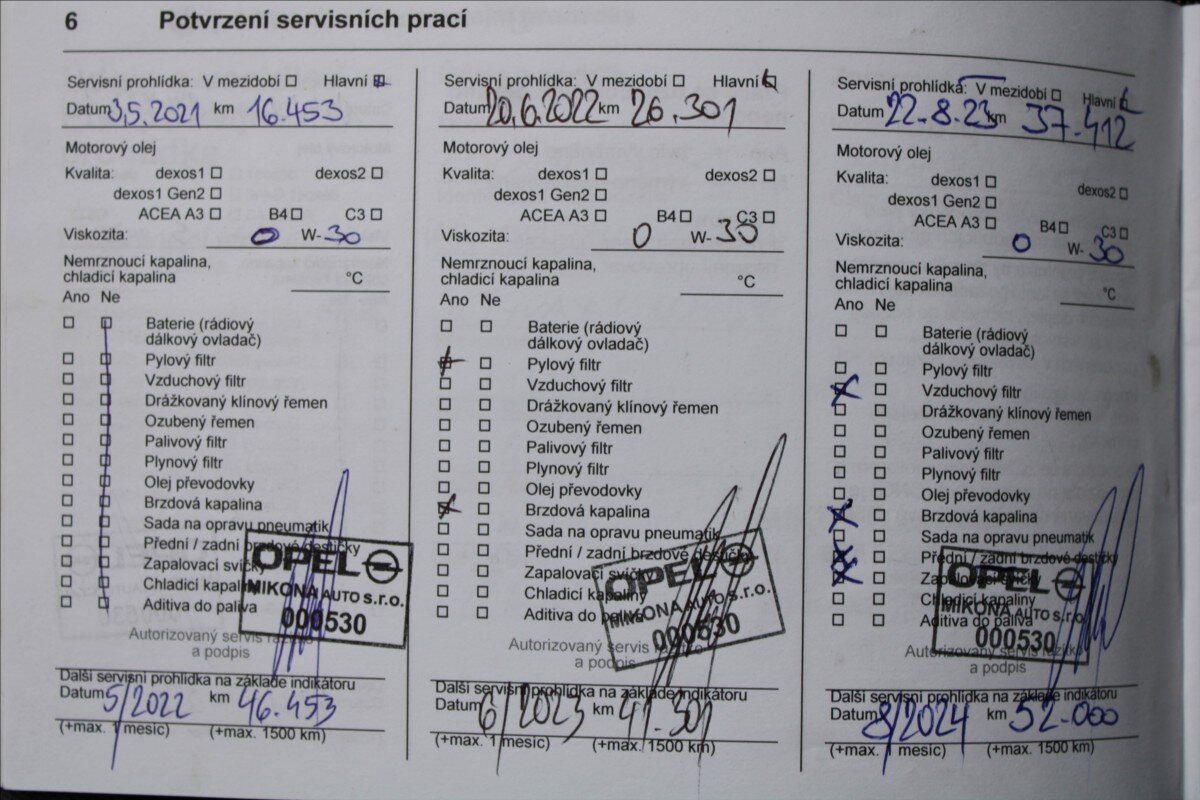 6 Potvrzení servisních prací
Servisní prohlídka: V mezidobí Hlavní
Datum 3,5.2021 km 16.453
Motorový olej
Kvalita: dexos1 dexos2
dexos1 Gen2
ACEA A3 B4 C3
Viskozita: 0 W-30
Nemrznoucí kapalina,
chladicí kapalina °C
Ano Ne
Baterie (rádiový
dálkový ovladač)
Pylový filtr
Vzduchový filtr
Drážkovaný klínový řemen
Ozubený řemen
Palivový filtr
Plynový filtr
Olej převodovky
Brzdová kapalina
Sada na opravu pneumatik
Přední / zadní brzdové destičky
Zapalovací svíčky
Chladicí kapaliny
Aditiva do paliva
OPEL
MIKONA AUTO s.r.o.
000530
Autorizovaný servis razítko
a podpis
Další servisní prohlídka na základě indikátoru
Datum 5/2022 km 46.453
(+max. 1 měsíc) (+max. 1500 km)
Servisní prohlídka: V mezidobí Hlavní
Datum 20.6.2022 km 26.301
Motorový olej
Kvalita: dexos1 dexos2
dexos1 Gen2
ACEA A3 B4 C3
Viskozita: 0 W-30
Nemrznoucí kapalina,
chladicí kapalina °C
Ano Ne
Baterie (rádiový
dálkový ovladač)
Pylový filtr
Vzduchový filtr
Drážkovaný klínový řemen
Ozubený řemen
Palivový filtr
Plynový filtr
Olej převodovky
Brzdová kapalina
Sada na opravu pneumatik
Přední / zadní brzdové destičky
Zapalovací svíčky
Chladicí kapaliny
Aditiva do paliva
OPEL
MIKONA AUTO s.r.o.
000530
Autorizovaný servis razítko
a podpis
Další servisní prohlídka na základě indikátoru
Datum 6/2023 km 41.301
(+max. 1 měsíc) (+max. 1500 km)
Servisní prohlídka: V mezidobí Hlavní
Datum 22.8.23 km 37.412
Motorový olej
Kvalita: dexos1 dexos2
dexos1 Gen2
ACEA A3 B4 C3
Viskozita: 0 W-30
Nemrznoucí kapalina,
chladicí kapalina °C
Ano Ne
Baterie (rádiový
dálkový ovladač)
Pylový filtr
Vzduchový filtr
Drážkovaný klínový řemen
Ozubený řemen
Palivový filtr
Plynový filtr
Olej převodovky
Brzdová kapalina
Sada na opravu pneumatik
Přední / zadní brzdové destičky
Zapalovací svíčky
Chladicí kapaliny
Aditiva do paliva
OPEL
MIKONA AUTO s.r.o.
000530
Autorizovaný servis razítko
a podpis
Další servisní prohlídka na základě indikátoru
Datum 8/2024 km 52.000
(+max. 1 měsíc) (+max. 1500 km)